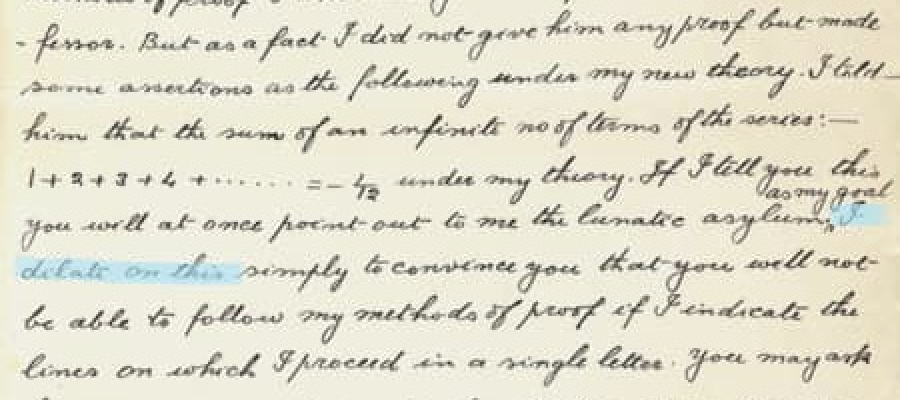 of proof
-fessor. But as a fact I did not give him any proof but made
some assertions as the following under my new theory. I told
him that the sum of an infinite no of terms of the series:—
1+2+3+4+...... = -1/12 under my theory. If I tell you this
as my goal
you will at once point out to me the lunatic asylum. I
dilate on this simply to convince you that you will not
be able to follow my methods of proof if I indicate the
lines on which I proceed in a single letter. You may ask